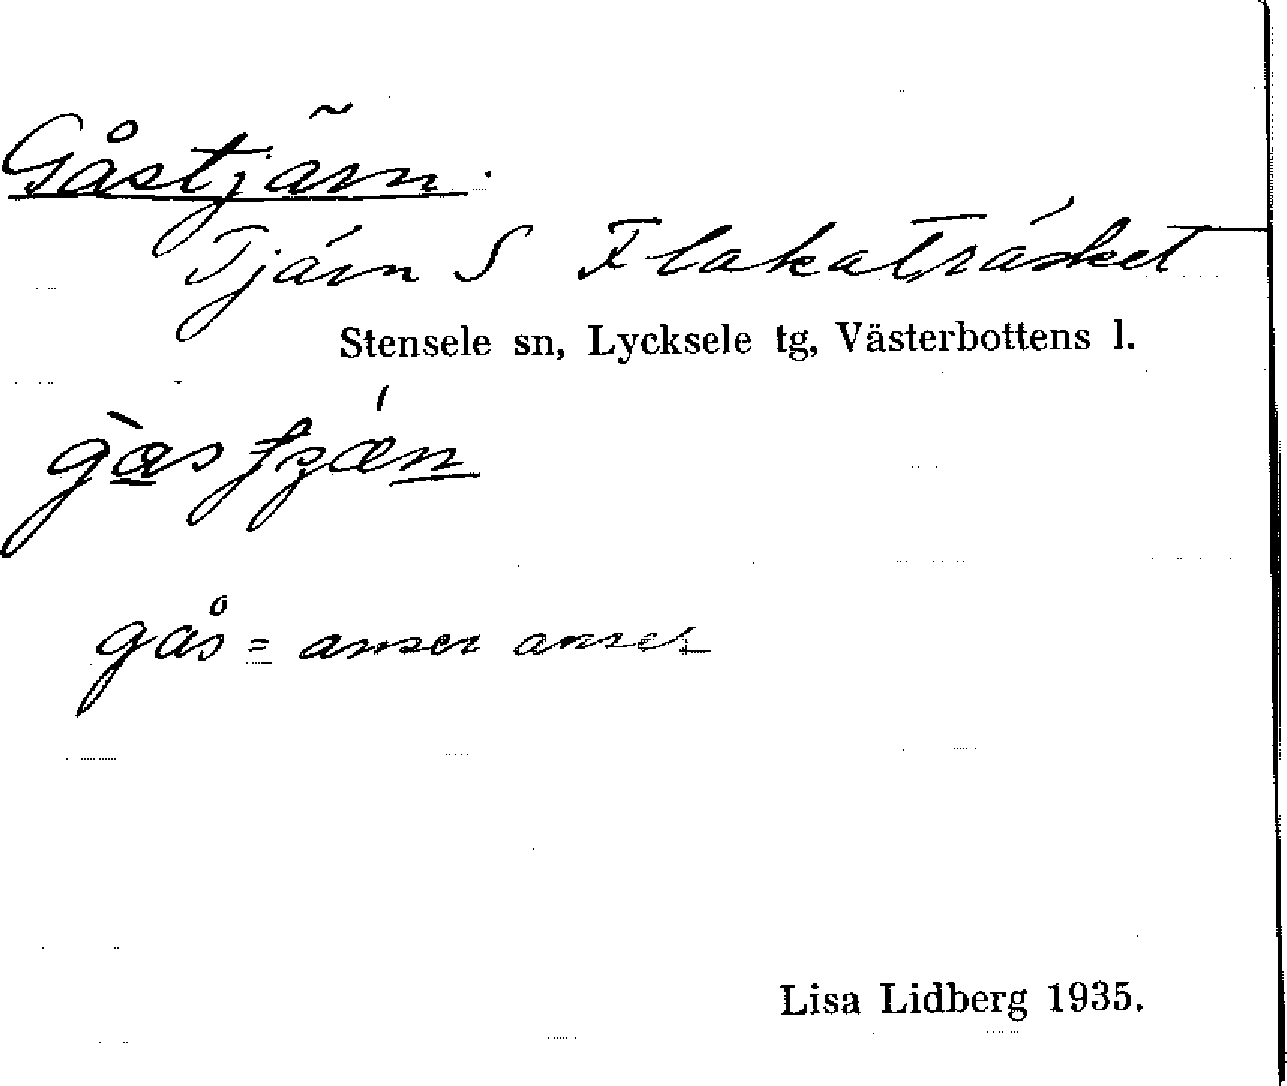 Gåstjärn.
Tjärn S Flakaträsket
Stensele sn, Lycksele tg, Västerbottens l.
gås = anser anser
Lisa Lidberg 1935.